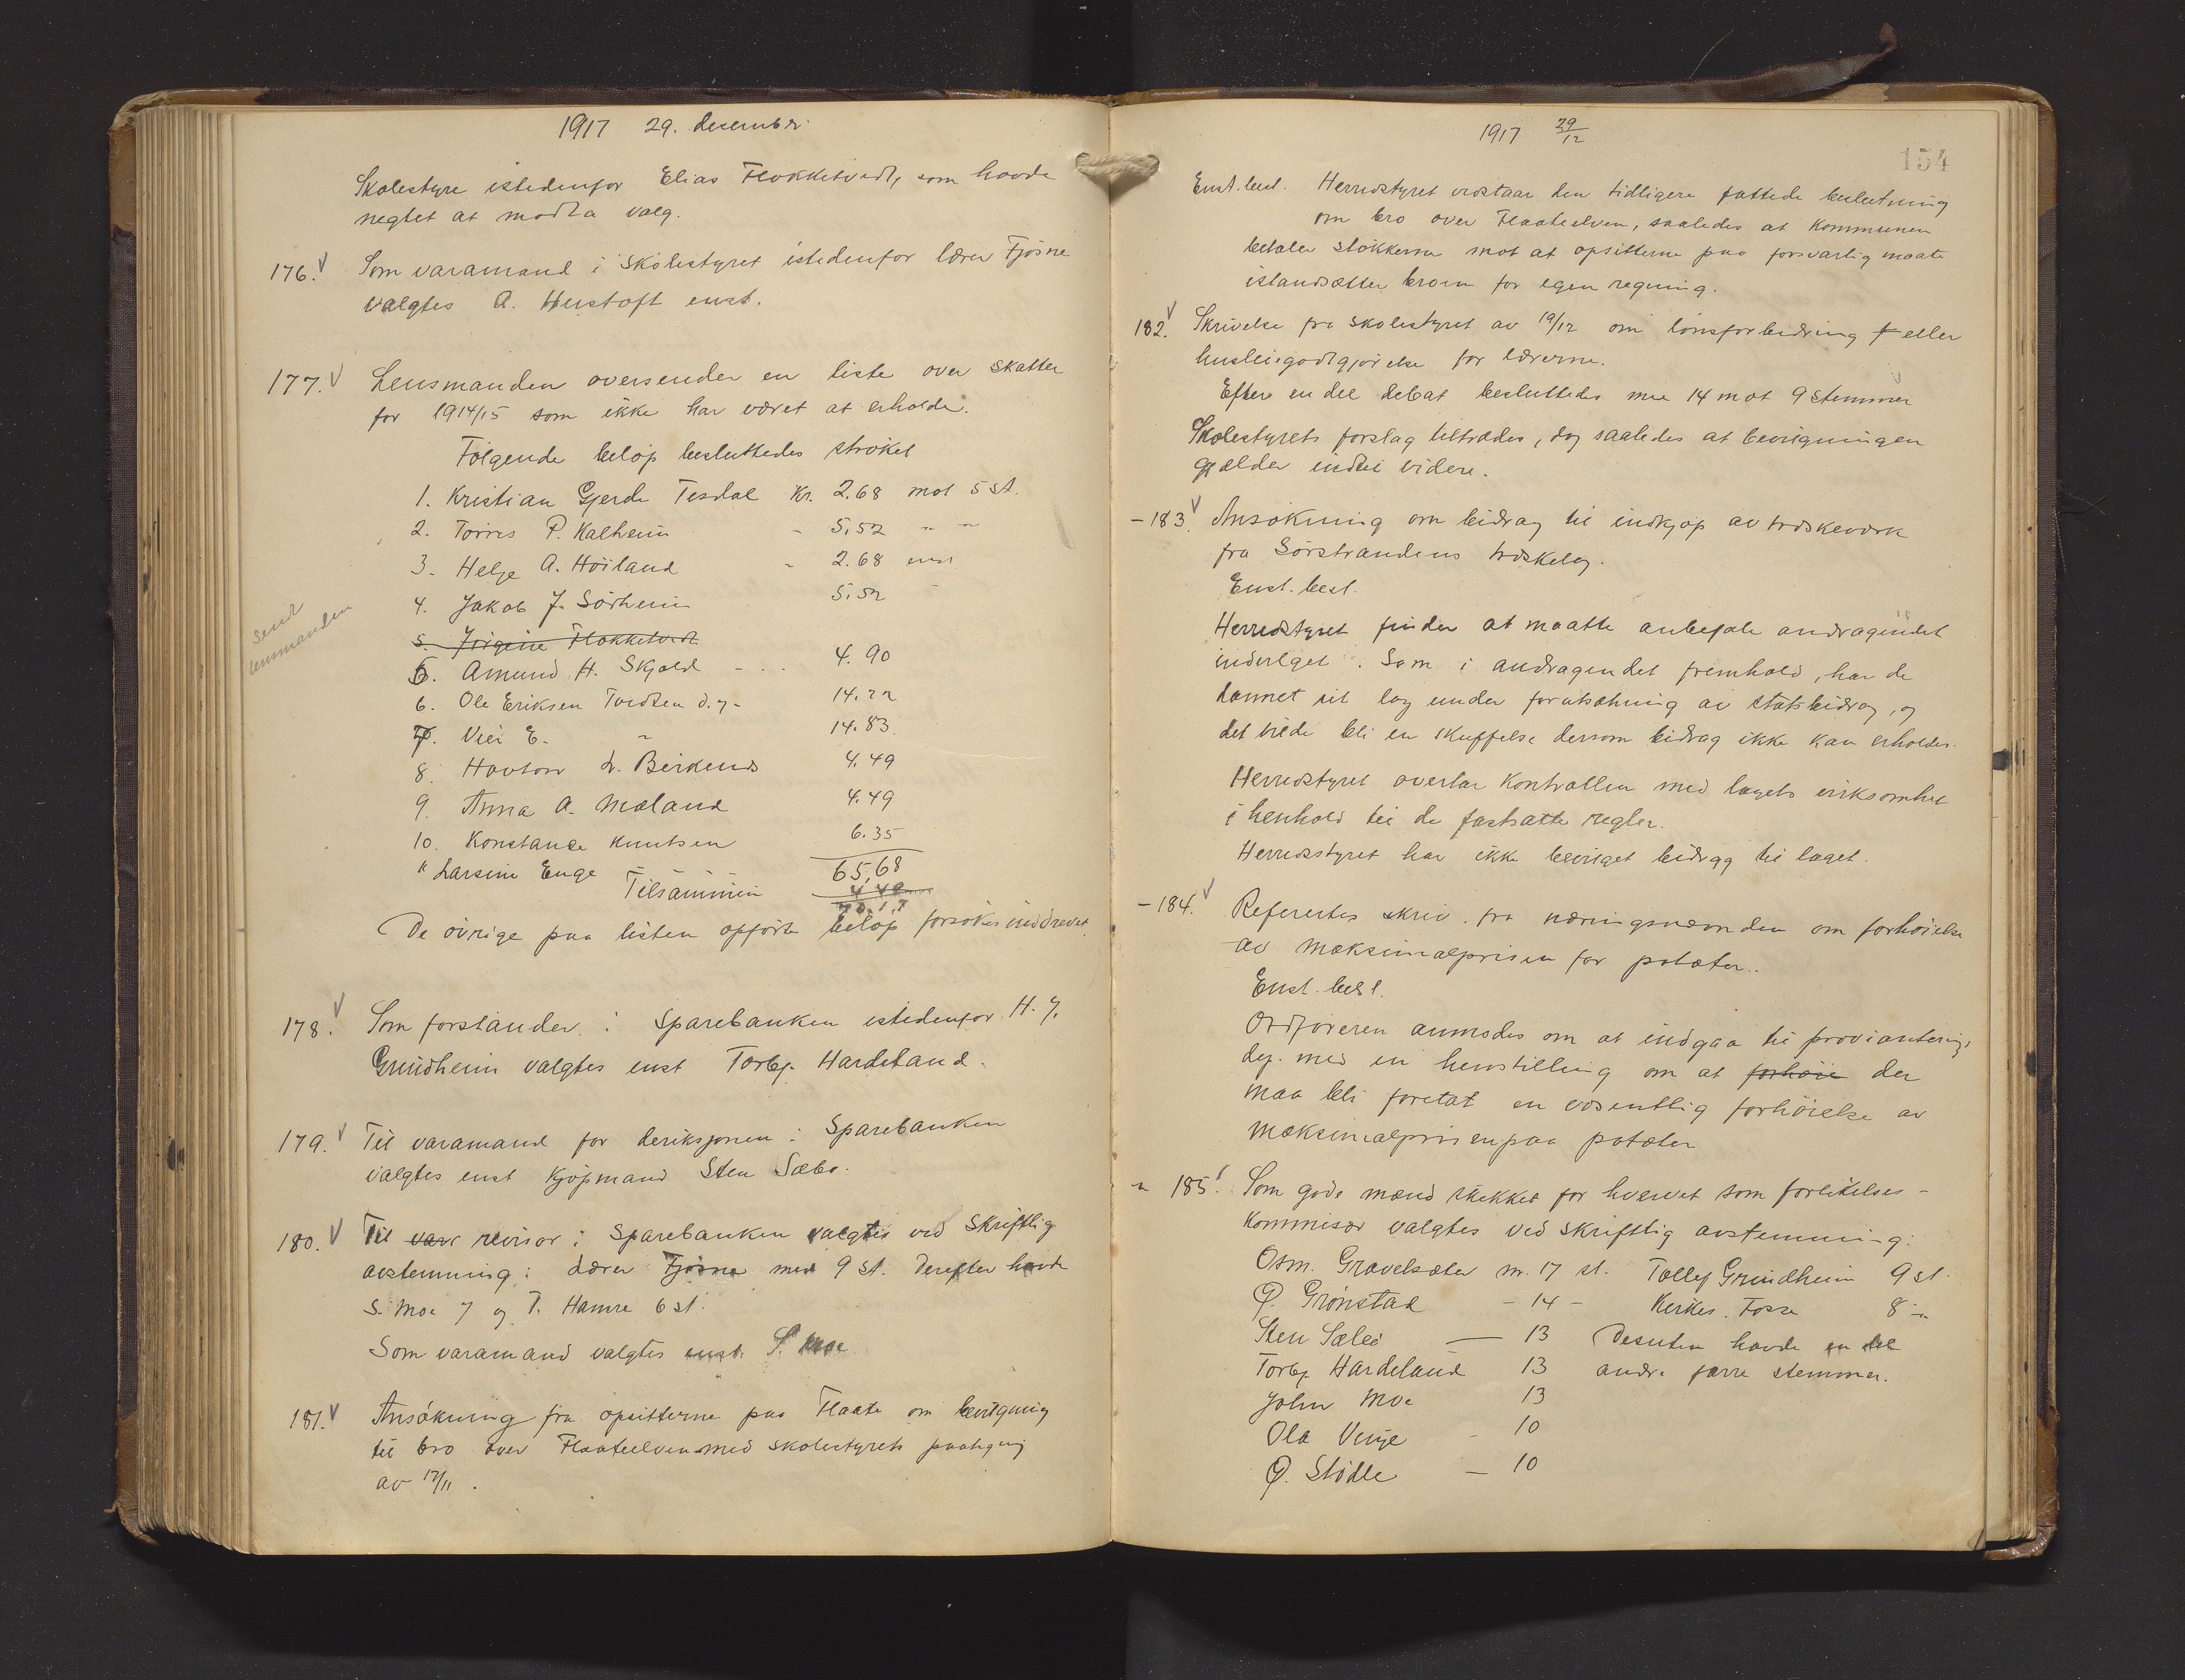 1917 29. december.
Skolestyre istedenfor Elias Flokketvedt, som havde
negtet at motta valg.
176. Som varamand i skolestyret istedenfor lærer Fjösne
valgtes A. Hustoft enst.
177. Lensmanden oversender en liste over skatter
for 1914/15 som ikke har været at erholde.
Fölgende belöp besluttedes ströket
1. Kristian Gjerde Tesdal Kr. 2.68 mot 5 st.
2. Torres P. Kalheim - 5,52 " "
3. Helge A. Höiland - 2.68 enst
4. Jakob J. Sörheim 5.52 -
send
lensmanden
5. Jörgine Flokketvedt
5. Amund H. Skjold - - 4.90
6. Ole Eriksen Tvedten d.y. 14.22
7. Vier E. " 14.83
8. Hovtor L. Birkenes 4.49
9. Anna A. Mæland 4.49
10. Konstance Knutsen 6.35
" Larsine Enge
Tilsammen 65,68
De övrige paa listen opförte belöp forsökes inddrevet.
178. Som forstander i Sparebanken istedenfor H. J.
Grindheim valgtes enst Torbj. Hardeland.
179. Til varamand for deriksjonen i Sparebanken
valgtes enst Kjöpmand Sten Sæbö.
180. Til vara revisor i Sparebanken valgtes ved skriftlig
avstemning: Lærer Fjösne med 9 st. Derefter havde
S. Moe 7 og T. Hamre 6 st.
Som varamand valgtes enst. S. Moe
181. Ansökning fra opsitterne paa Flaate om bevilgning
til bro over Flaateelven med skolestyrets paategning
av 17/11.
1917 29/12
154
Enst. besl. Herredstyret vedstaar den tidligere fattede beslutning
om bro over Flaateelven, saaledes at kommunen
betaler stokkerne mot at opsitterne paa forsvarlig maate
istandsætter broen for egen regning.
182. Skrivelse fra skolestyret av 19/12 om lönsforbedring f eller
husleiegodtgjörelse for lærerne.
Efter en del debat besluttedes med 14 mot 9 stemmer
Skolestyrets forslag tiltrædes, dog saaledes at bevilgningen
gjælder indtil videre.
- 183. Ansökning om bidrag til indkjöp av træskeværk
fra Sörstrandens træskelag.
Enst. besl.
Herredstyret finder at maatte anbefale andragendet
indvilget. Som i andragendet fremhold, har de
dannet sit lag under forutsætning av statsbidrag, og
det vilde bli en skuffelse dersom bidrag ikke kan erholdes.
Herredstyret overtar kontrollen med lagets virksomhet
i henhold til de fastsatte regler.
Herredsstyret har ikke bevilget bidrag til laget.
- 184. Referertes skriv. fra næringsnævnden om forhöielse
av maksimalprisen for poteter.
Enst. besl.
Ordföreren anmodes om at indgaa til provianterings
dep. med en henstilling om at forhöie der
maa bli foretat en væsentlig forhöielse av
maksimalprisen paa poteter
" 185. Som gode mænd skikket for hvervet som forlikelses-
kommisær valgtes ved skriftlig avstemning:
Osm. Gravelsæter m. 17 st. Tollef Grindheim 9 st.
P. Grönstad - 14 - Kirkes. Fosse 8 "
Sten Sæbö — 13 Desuten havde en del
Torbj. Hardeland 13 andre færre stemmer.
John Moe 13
Ola Vinje - 10
P. Stödle — 10